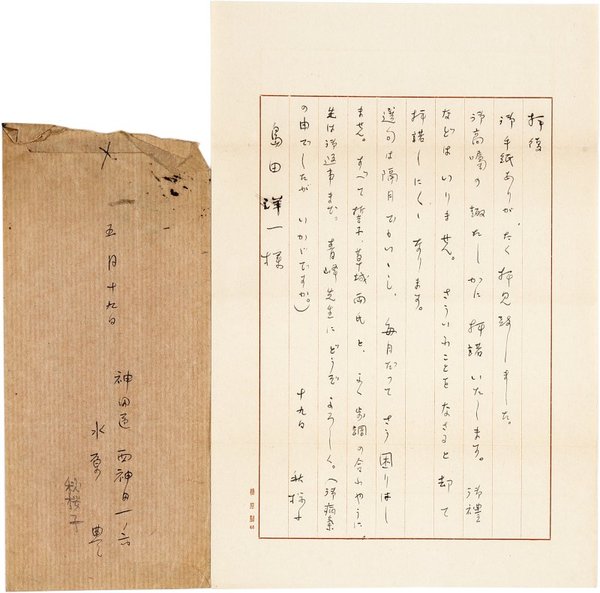 拝復
御手紙ありがたく拝見致しました。
御高嘱の趣たしかに拝諾いたします。御禮
などはいりません。さういふことをなさると却て
拝諾しにくくなります。
選句は隔月でもいいし、毎月だつてさう困りはし
ません。すべて哲子、草城両氏と、よく歩調の合ふやうに、
先は御返事まで。青峰先生にどうぞよろしく。(御病気
の由でしたがいかゞですか。)
十九日 秋桜子
島田洋一様
五月十九日
神田区西神田一ノ六
水原豊
秋桜子